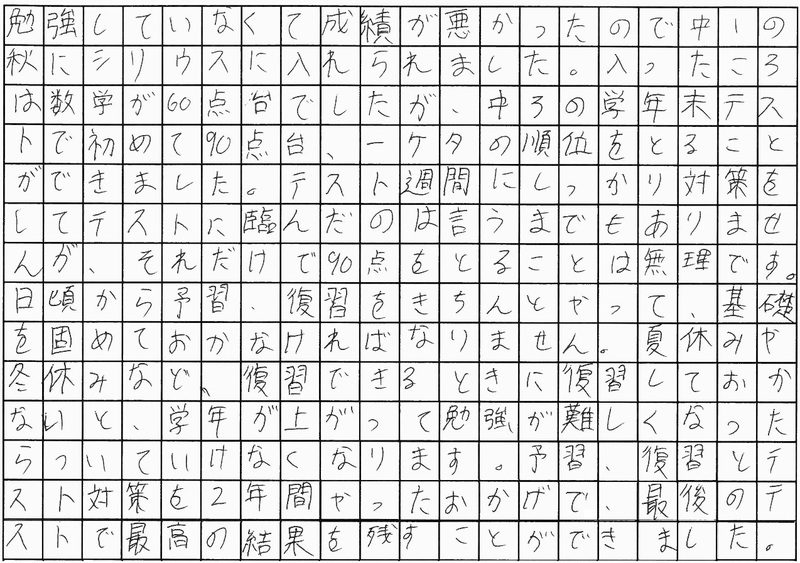 勉強していなくて成績が悪かったので中一の
秋にシリウスに入れられました。入ったころ
は数学が60点台でしたが、中3の学年末テス
トで初めて90点台、一ケタの順位をとること
ができました。テスト週間にしっかり対策を
してテストに臨んだのは言うまでもありませ
んが、それだけで90点をとることは無理です。
日頃から予習、復習をきちんとやって、基礎
を固めておかなければなりません。夏休みや
冬休みなど、復習できるときに復習しておか
ないと、学年が上がって勉強が難しくなった
らついていけなくなります。予習、復習とテ
スト対策を2年間やったおかげで、最後のテ
ストで最高の結果を残すことができました。